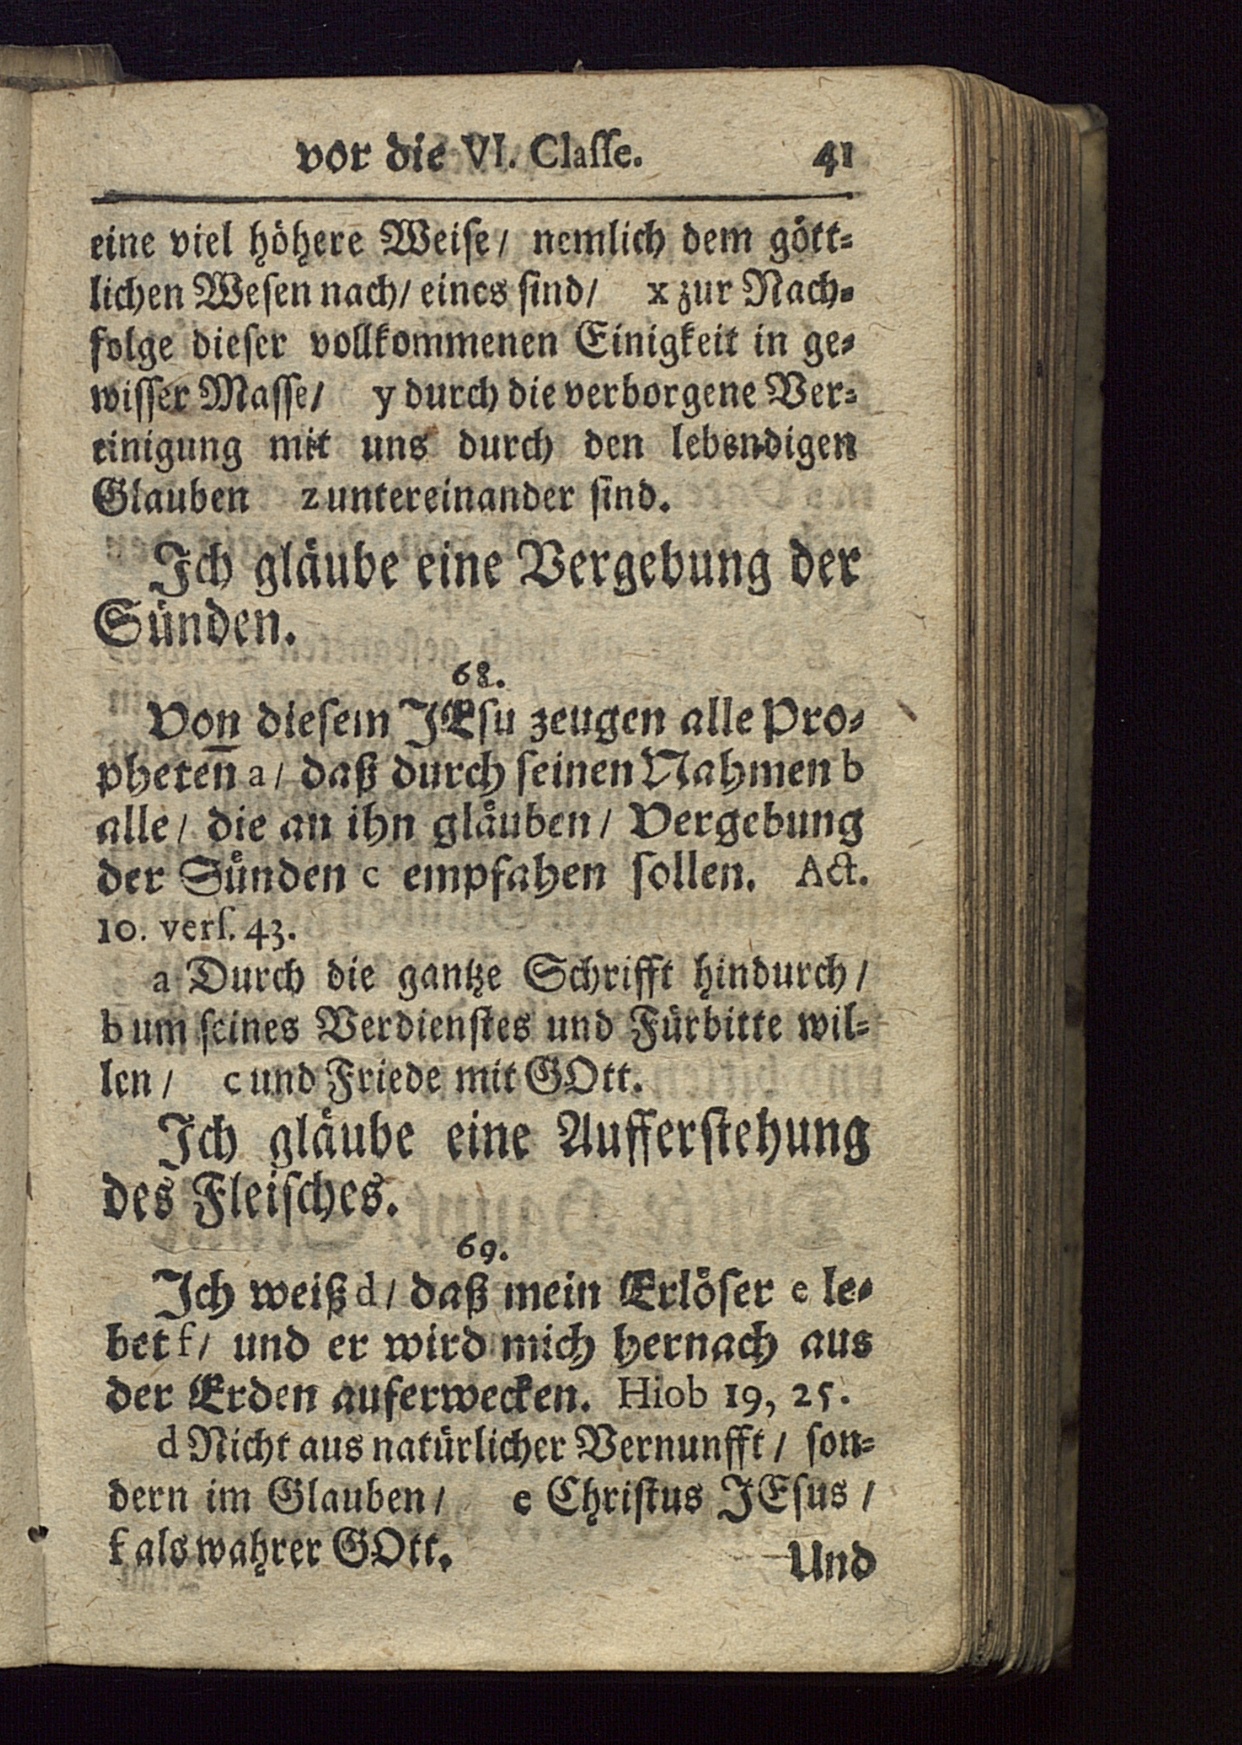 vor die VI. Classe. 41
eine viel höhere Weise/ nemlich dem gött-
lichen Wesen nach/ eines sind/ x zur Nach-
folge dieser vollkommenen Einigkeit in ge-
wisser Masse/ y durch die verborgene Ver-
einigung mit uns durch den lebendigen
Glauben z untereinander sind.
Ich gläube eine Vergebung der
Sünden.
68.
Von diesem JEsu zeugen alle Pro-
pheten̄ a/ daß durch seinen Nahmen b
alle/ die an ihn gläuben/ Vergebung
der Sünden c empfahen sollen. Act.
10. vers. 43.
a Durch die gantze Schrifft hindurch/
b um seines Verdienstes und Fürbitte wil-
len/ c und Friede mit GOtt.
Ich gläube eine Aufferstehung
des Fleisches.
69.
Ich weiß d/ daß mein Erlöser e le-
bet f/ und er wird mich hernach aus
der Erden auferwecken. Hiob 19, 25.
d Nicht aus natürlicher Vernunfft/ son-
dern im Glauben/ e Christus JEsus/
f als wahrer GOtt.
Und